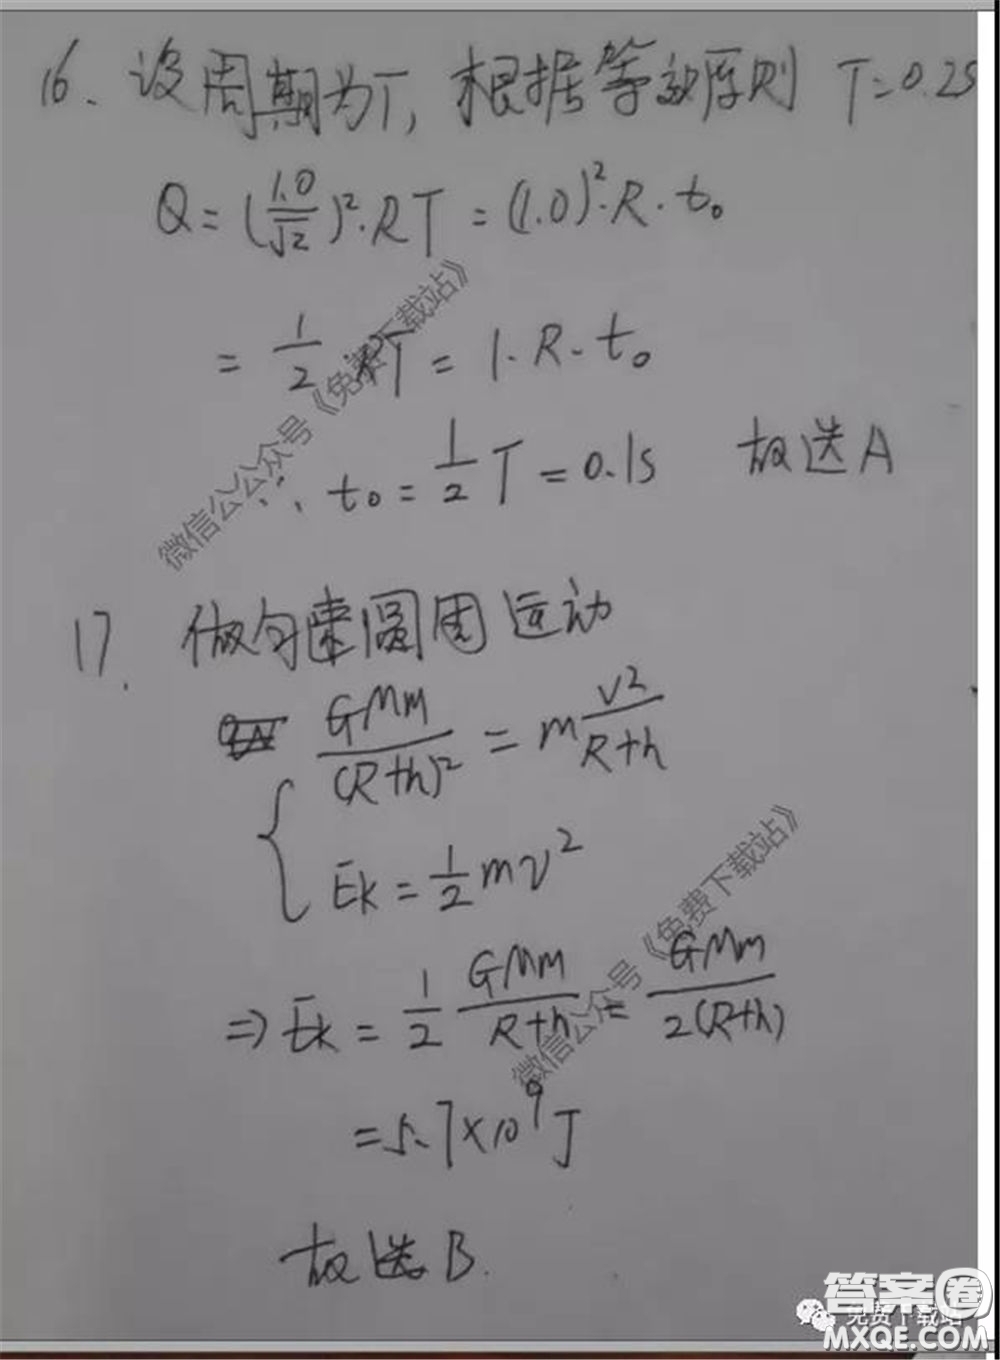 16、设周期为T，根据等效原则 T=0.2S
Q=(1.0/√2)²·RT=(1.0)²·R·t₀
=1/2 RT=1·R·t₀
∴ t₀=1/2 T=0.1s 故选A
17. 做匀速圆周运动
GMm/(R+h)²=m v²/(R+h)
Ek=1/2 mv²
⇒Ek=1/2 GMm/(R+h)=GMm/2(R+h)
=5.7×10⁹J
故选B.
微信公众号《免费下载站》
微信公众号《免费下载站》
免费下载站
答案圈
MXQE.COM